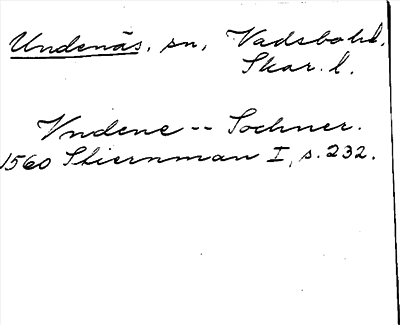 Undenäs, sn, Vadsboh.
Skar. l.
Vndene -- Sochner.
1560 Stiernman I, s. 232.